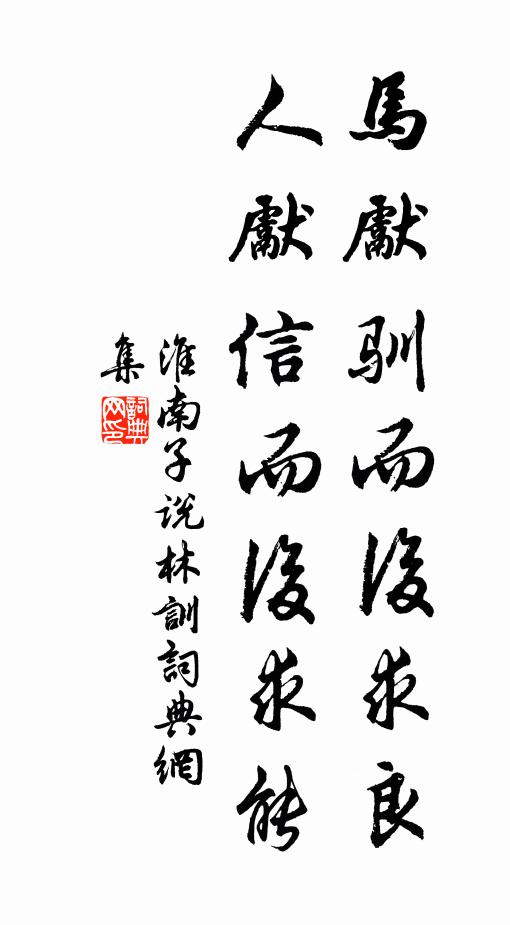 馬獻馴而後求良
人獻信而後求能
淮南子説林訓詞典網
集
詞典网印